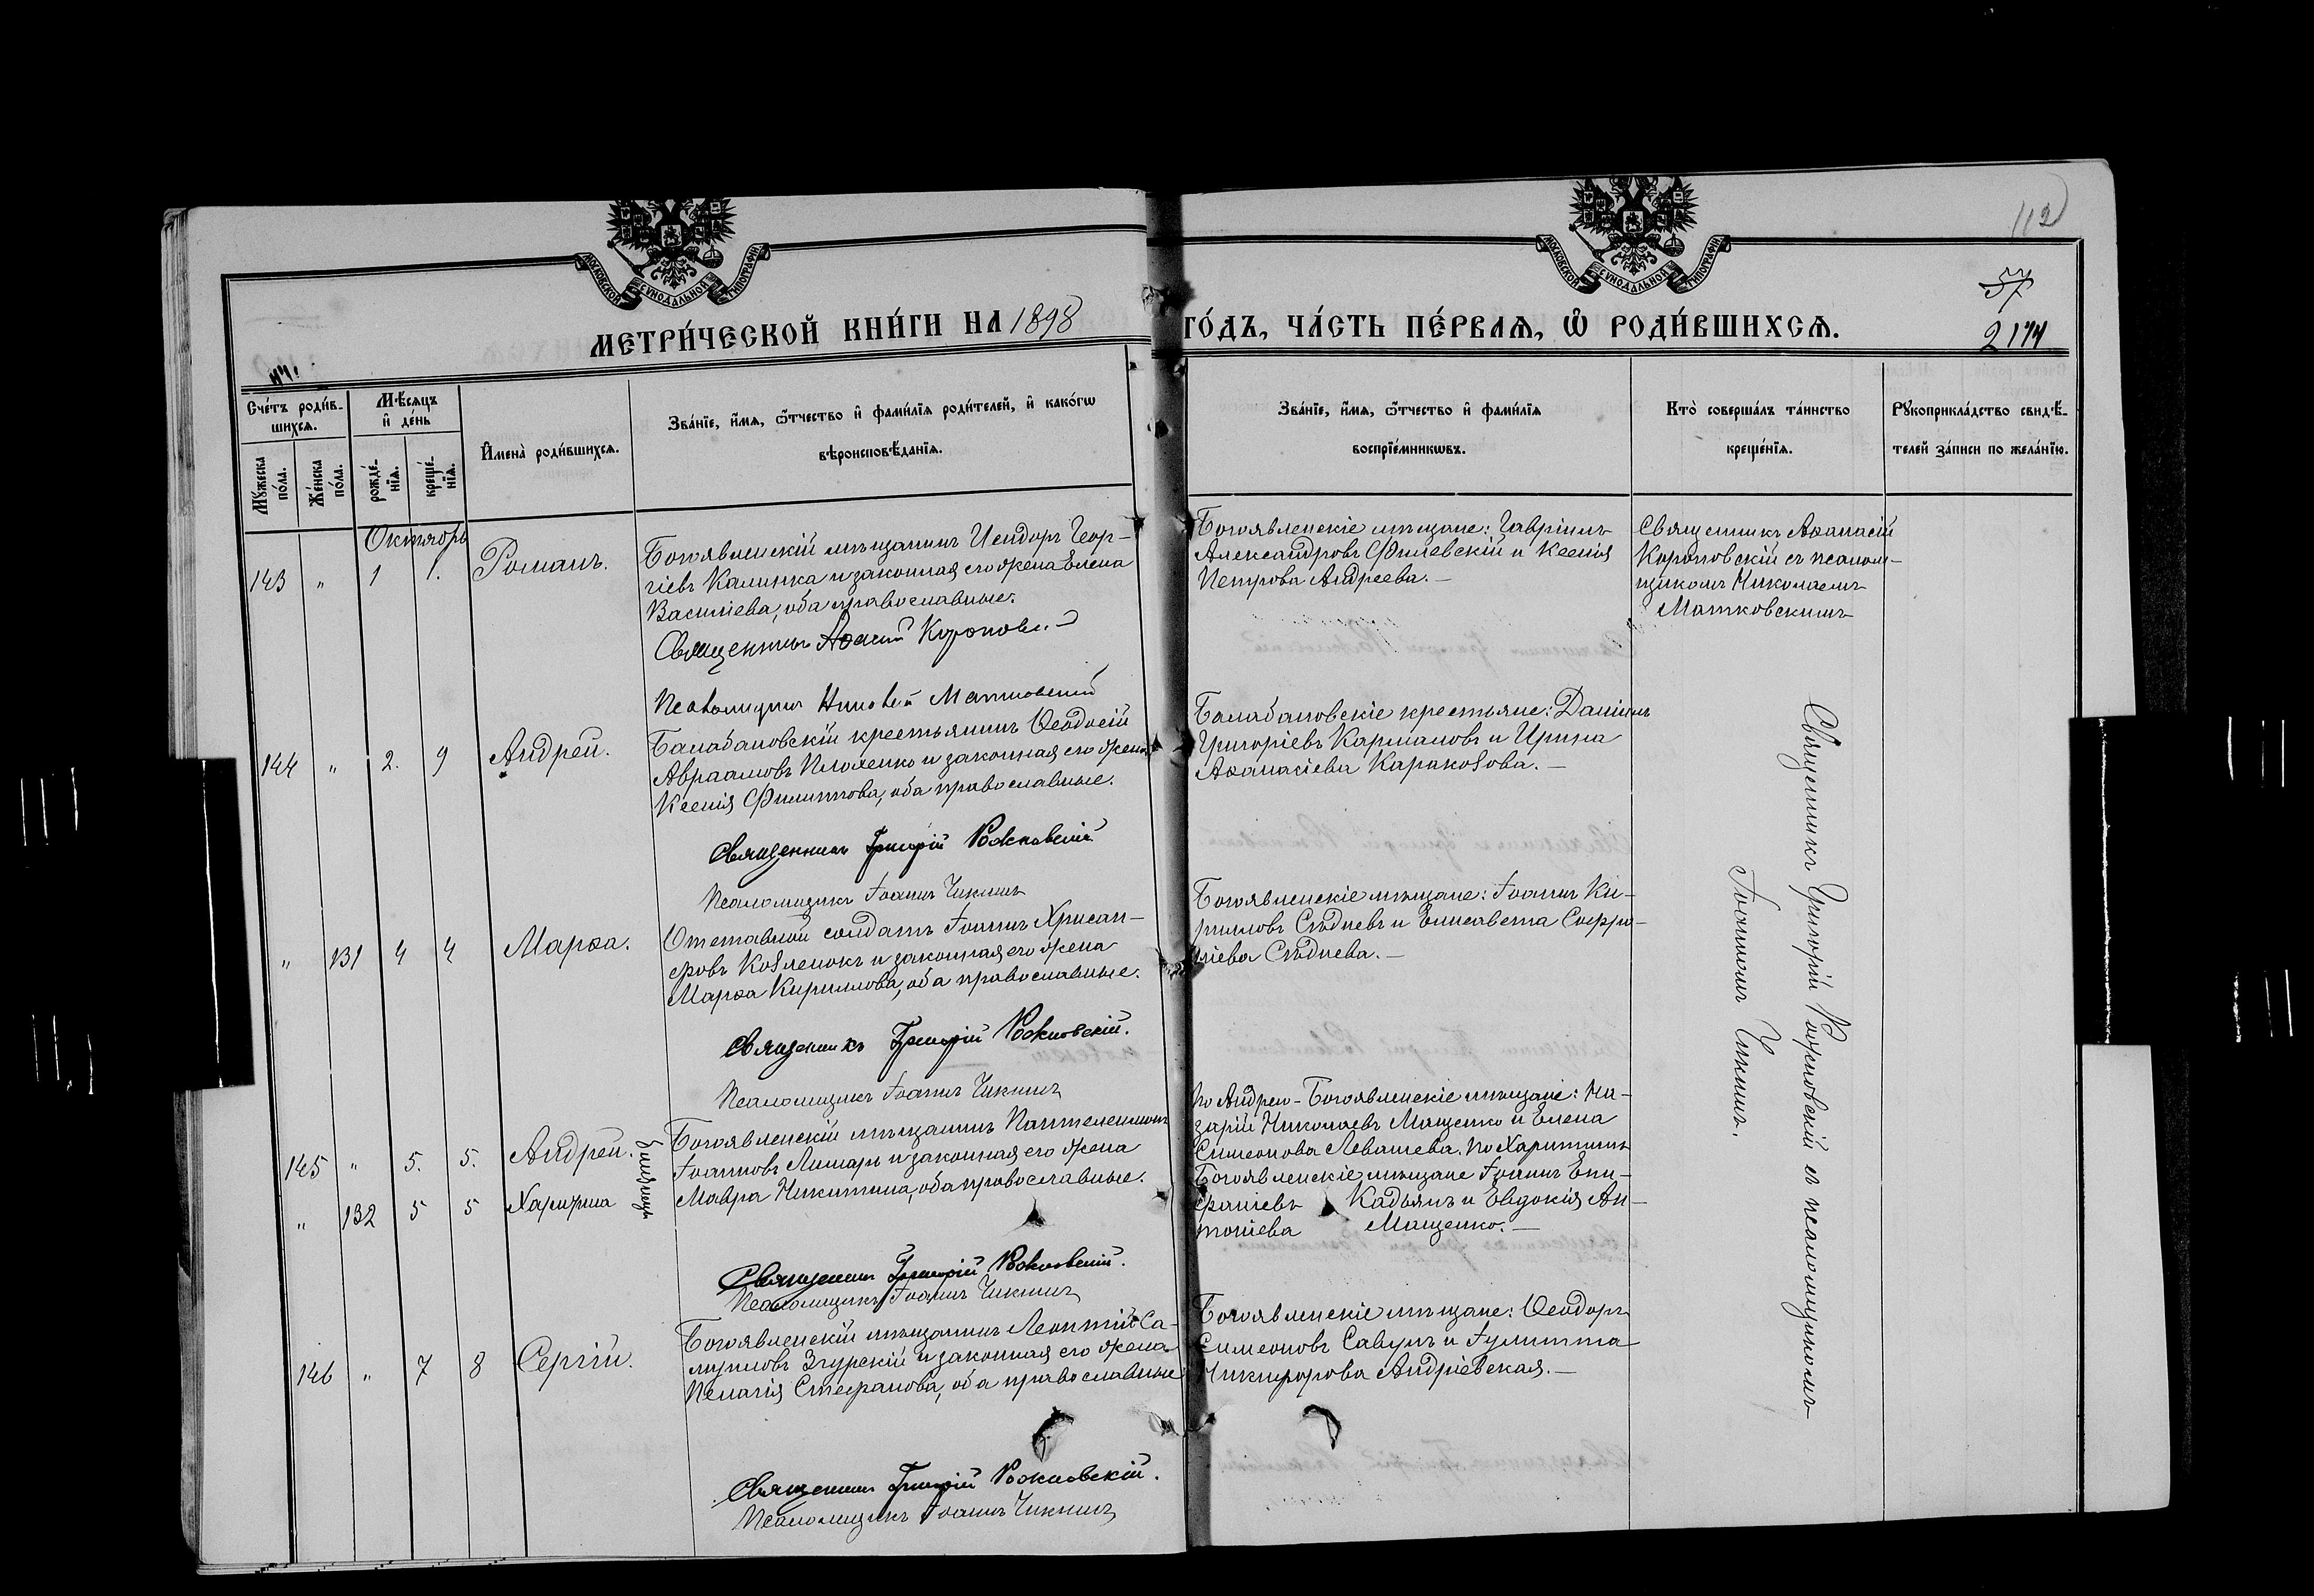 МОСКОВСКОЙ СѴНОДАЛЬНОЙ ТИПОГРАФІИ
МОСКОВСКОЙ СѴНОДАЛЬНОЙ ТИПОГРАФІИ
112
57
2174
МЕТРИ́ЧЕСКОЙ КНИ́ГИ НА 1898 ГО́ДЪ, ЧА́СТЬ ПЕ́РВАѦ, Ѽ РОДИ́ВШИХСѦ.
Сче́тъ роди́в-
шихсѧ.
Мꙋ́жеска по́ла.
Же́нска по́ла.
Мѣ́сѧцъ и҆ де́нь
рожде́-
нїѧ.
креще́-
нїѧ.
И҆мена̀ роди́вшихсѧ.
Зва́нїе, и҆́мѧ, ѻ҆́тчество и҆ фами́лїѧ роди́телей, и҆ како́гѡ
вѣроисповѣ́данїѧ.
Зва́нїе, и҆́мѧ, ѻ҆́тчество и҆ фами́лїѧ
воспрїе́мникѡвъ.
Кто̀ соверша́лъ та́инство
креще́нїѧ.
Рꙋкоприкла́дство свидѣ́-
телей за́писи по жела́нїю.
Октябрь
143 " 1 1. Романъ.
Богоявленскій мѣщанинъ Исидоръ Геор-
гіевъ Калинка и законная его жена Елена
Василіева, оба православные.
Священникъ Короновс
Псаломщикъ Николай Матковскій
Богоявленскіе мѣщане: Гавріилъ
Александровъ Филевскій и Ксенія
Петрова Андреева. —
Священникъ Аѳанасій
Короновскій съ псалом-
щикомъ Николаемъ
Матковскимъ
144 " 2. 9 Андрей.
Балабановскій крестьянинъ Ѳеодосій
Авраамовъ и законная его жена
Ксенія Филиппова, оба православные.
Священникъ Григорій Рожновскій
Псаломщикъ Іоаннъ Чикинъ
Балабановскіе крестьяне: Даніилъ
Григоріевъ Кармановъ и Ирина
Аѳанасіева Каракозова. —
" 131 4 4 Марѳа.
Отставной солдатъ Іоаннъ Хрисан-
фовъ Козленокъ и законная его жена
Марѳа Кириллова, оба православные.
Священникъ Григорій Рожновскій.
Псаломщикъ Іоаннъ Чикинъ
Богоявленскіе мѣщане: Іоаннъ Ки-
рилловъ Слѣдневъ и Елисавета Софро-
ніева Слѣднева. —
145 " 5. 5. Андрей.
" 132 5 5 Харитина
Близнецы
Богоявленскій мѣщанинъ Пантелеимонъ
Іоанновъ Лимарь и законная его жена
Мавра Никитина, оба православные.
Священникъ Григорій Рожновскій.
Псаломщикъ Іоаннъ Чикинъ
По Андрею - Богоявленскіе мѣщане: На-
зарій Николаевъ Мащенко и Елена
Симеонова Левашева. По Харитинѣ
Богоявленскіе мѣщане Іоаннъ Епи-
фаніевъ Кадьянъ и Евдокія Ан-
тоніева Мащенко. —
146 " 7 8 Сергій.
Богоявленскій мѣщанинъ Леонтій Са-
муиловъ Згурскій и законная его жена
Пелагія Стефанова, оба православные
Священникъ Григорій Рожновскій.
Псаломщикъ Іоаннъ Чикинъ
Богоявленскіе мѣщане: Ѳеодоръ
Симеоновъ Савулъ и Іулитта
Никифорова Андріевская. —
Священникъ Григорій Рожновскій съ псаломщикомъ
Іоанномъ Чикинымъ.